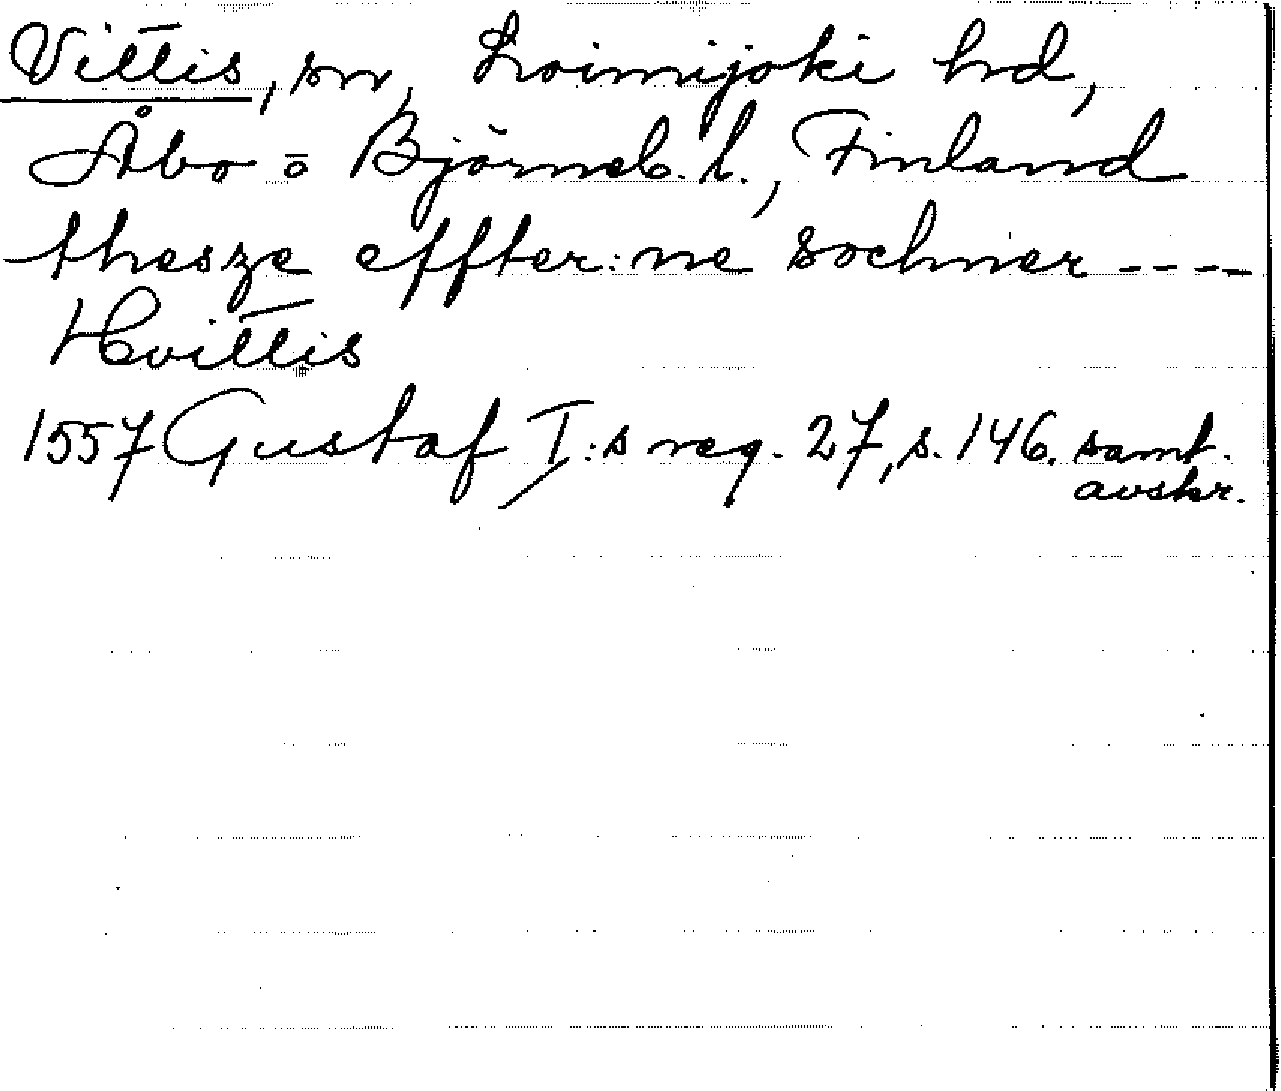 Vittis, sn, Loimijoki hd,
Åbo o Björneb. l., Finland
thesze effter:ne sochner ----
Hvittis
1557 Gustaf I:s reg. 27, s. 146. samt.
avskr.